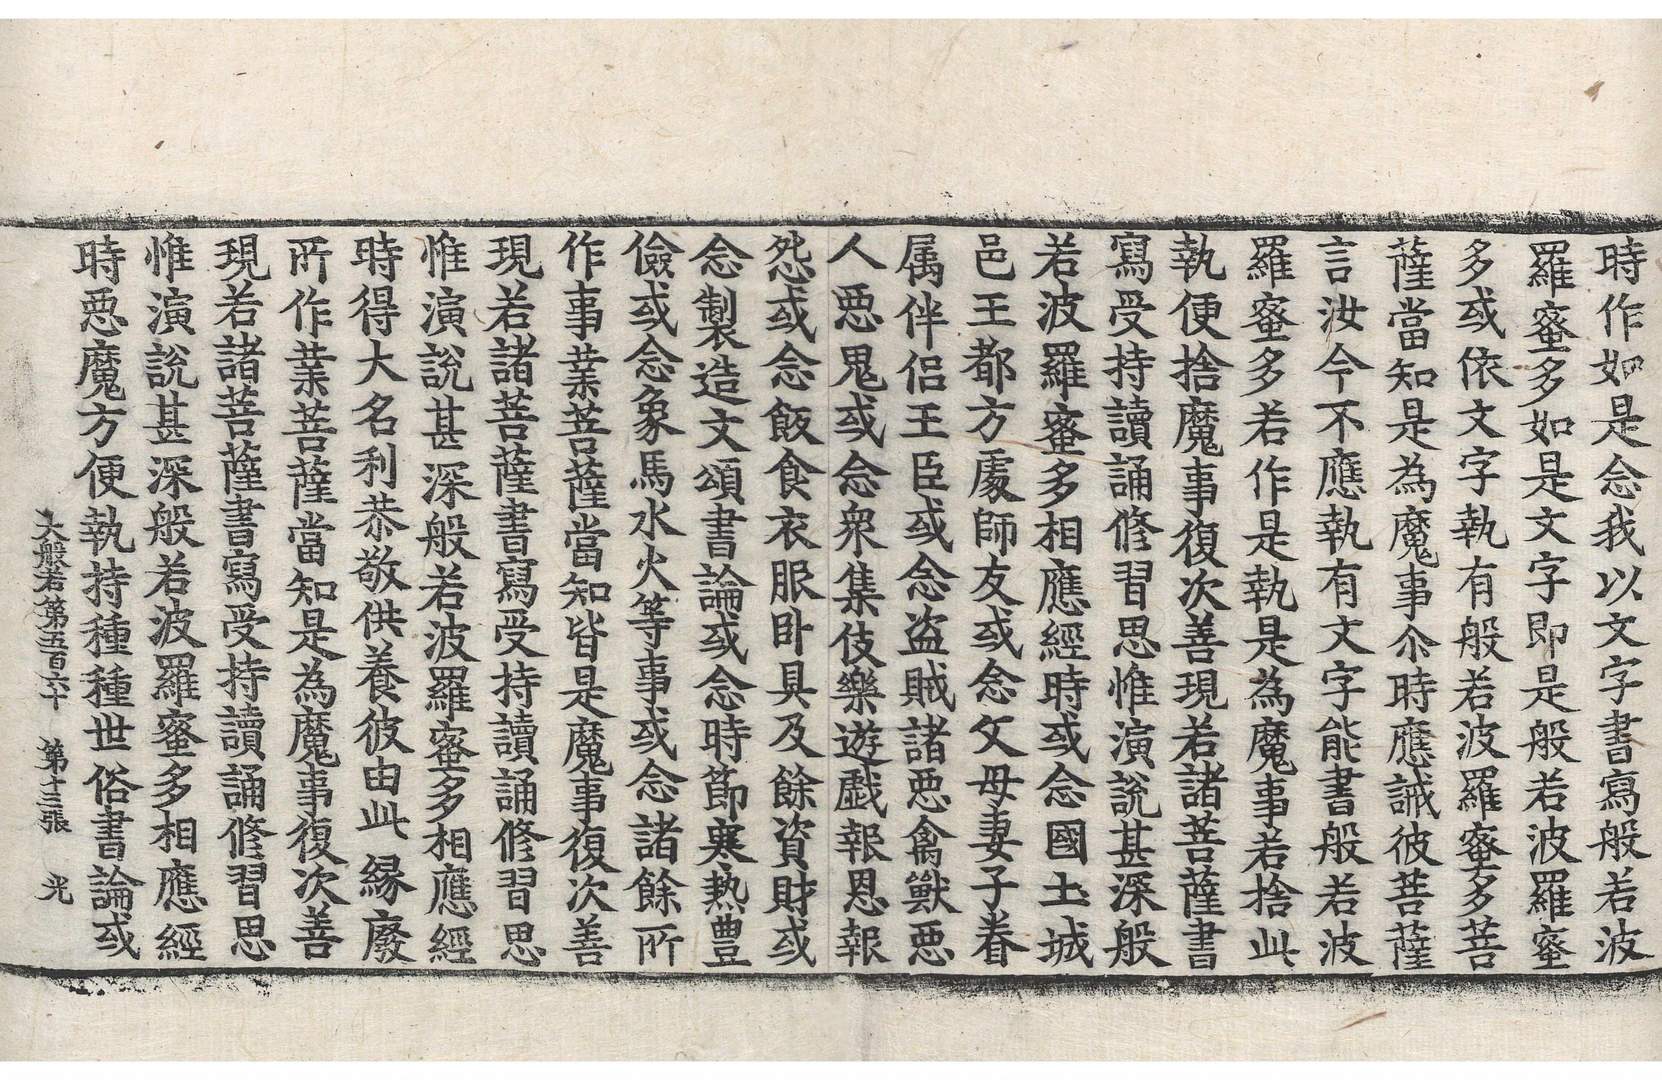 時作如是念我以文字書寫般若波
羅蜜多如是文字即是般若波羅蜜
多或依文字執有般若波羅蜜多菩
薩當知是為魔事尒時應誡彼菩薩
言汝今不應執有文字能書般若波
羅蜜多若作是執是為魔事若捨此
執便捨魔事復次善現若諸菩薩書
寫受持讀誦修習思惟演說甚深般
若波羅蜜多相應經時或念國土城
邑王都方處師友或念父母妻子眷
属伴侣王臣或念盗賊諸惡禽獸惡
人惡鬼或念衆集伎樂遊戲報恩報
怨或念飯食衣服卧具及餘資財或
念製造文頌書論或念時節寒熱豊
儉或念象馬水火等事或念諸餘所
作事業菩薩當知皆是魔事復次善
現若諸菩薩書寫受持讀誦修習思
惟演說甚深般若波羅蜜多相應經
時得大名利恭敬供養彼由此縁廢
所作業菩薩當知是為魔事復次善
現若諸菩薩書寫受持讀誦修習思
惟演說甚深般若波羅蜜多相應經
時惡魔方便執持種種世俗書論或
大般若第五百六十 第十三張 光